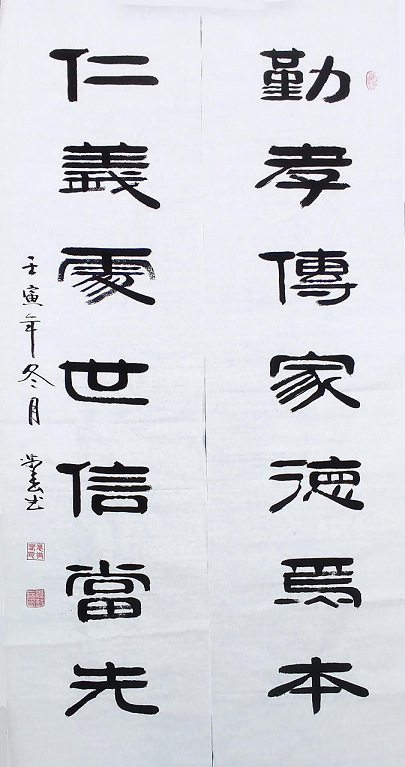 勤孝傳家德爲本
仁義處世信當先
壬寅年冬月